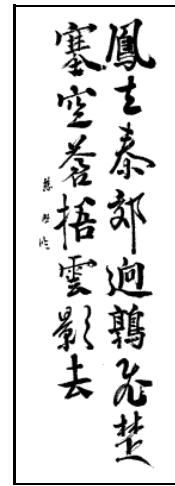 鳳去秦郊迥鶉飛楚
塞空蒼梧雲影去